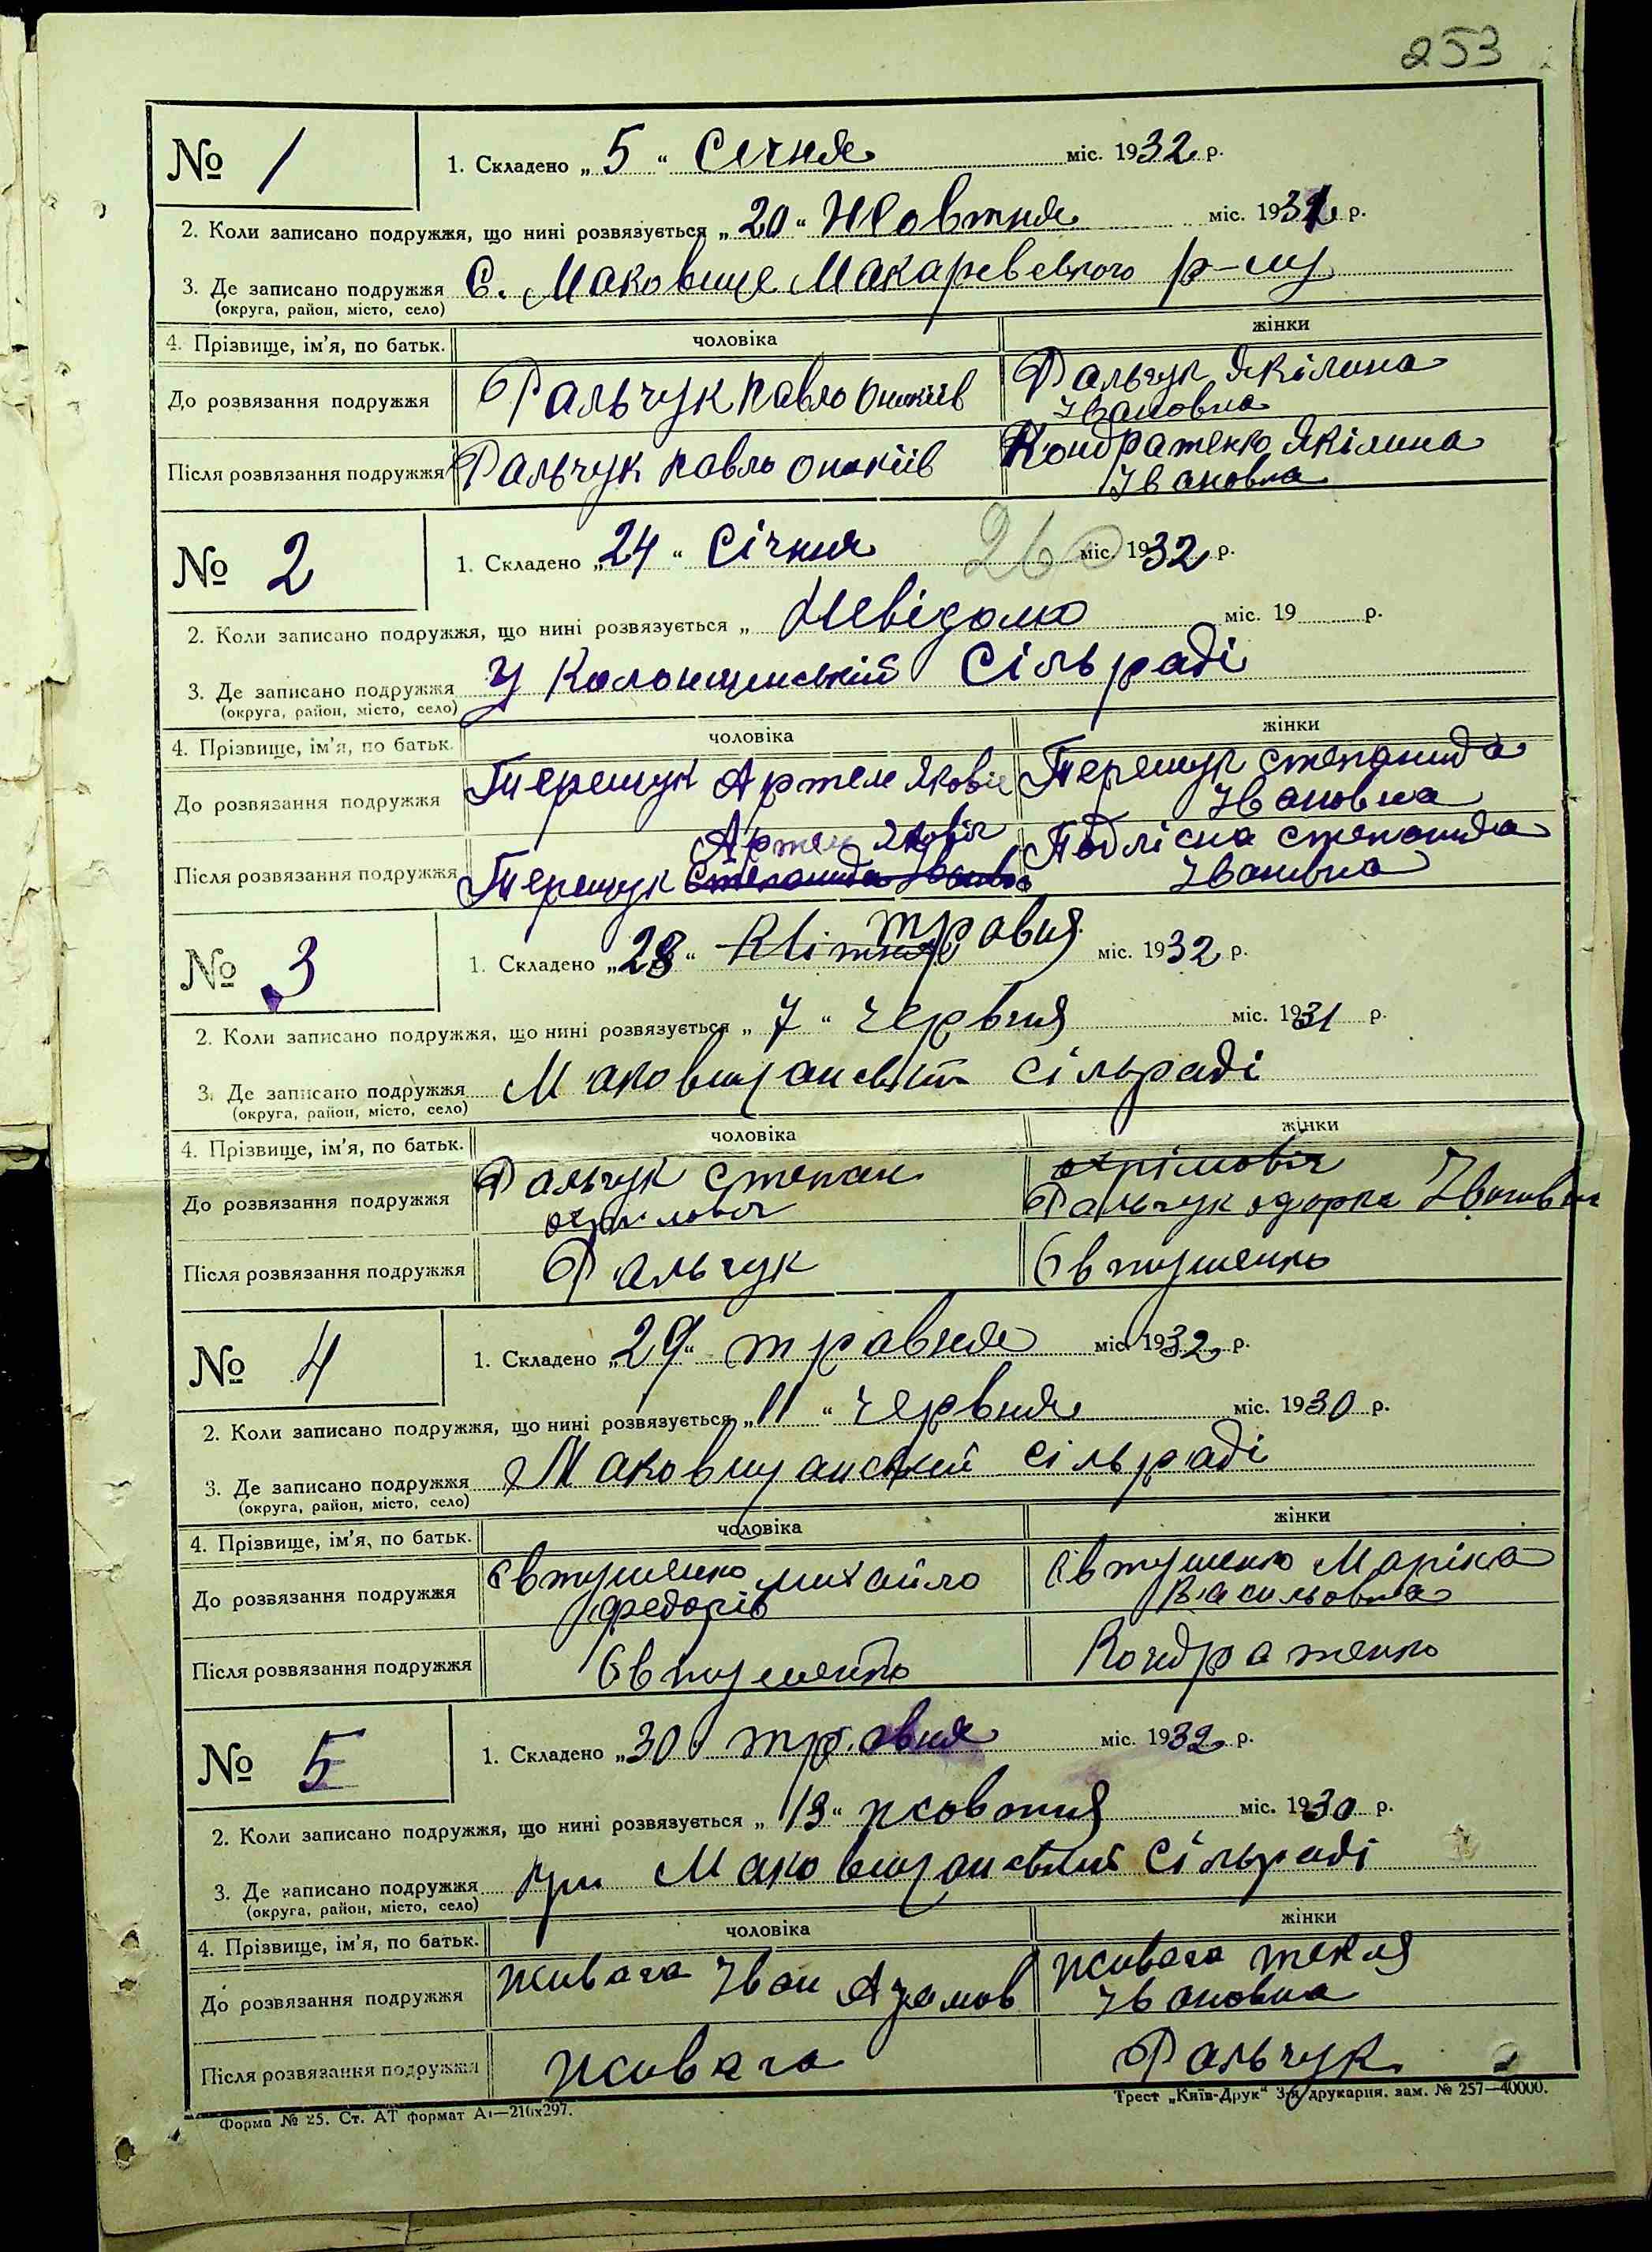 253
№ 1
1. Складено „5“ Сечня міс. 1932 р.
2. Коли записано подружжя, що нині розвязується „20“ Жовтня міс. 1931 р.
3. Де записано подружжя С. Маковище Макаревського р-ну
(округа, район, місто, село)
4. Прізвище, ім’я, по батьк. чоловіка жінки
До розвязання подружжя Фальчук Павло Онокіїв Фальчук Якілина
Івановна
Після розвязання подружжя Фальчук Павло Онокіїв Кондратенко Якілина
Івановна
№ 2
1. Складено „24“ Січня міс. 1932 р.
2. Коли записано подружжя, що нині розвязується „ Невідомо міс. 19 р.
3. Де записано подружжя У Колонщинській Сільраді
(округа, район, місто, село)
4. Прізвище, ім’я, по батьк. чоловіка жінки
До розвязання подружжя Терещук Артем Яковіч Терещук Степанида
Івановна
Артем Яковіч
Після розвязання подружжя Терещук Степанида Іванівна Подлісна Степанида
Іванівна
№ 3
1. Складено „28“ Квітня травня міс. 1932 р.
2. Коли записано подружжя, що нині розвязується „7“ червня міс. 1931 р.
3. Де записано подружжя Маковищанській сільраді
(округа, район, місто, село)
4. Прізвище, ім’я, по батьк. чоловіка жінки
До розвязання подружжя Фальчук Степан охрімовіч
охрімовіч Фальчук одорка Івановна
Після розвязання подружжя Фальчук Євтушенко
№ 4
1. Складено „29“ травня міс. 1932 р.
2. Коли записано подружжя, що нині розвязується „11“ червня міс. 1930 р.
3. Де записано подружжя Маковищанській сільраді
(округа, район, місто, село)
4. Прізвище, ім’я, по батьк. чоловіка жінки
До розвязання подружжя Євтушенко михайло Євтушенко Маріка
федорів Васильовна
Після розвязання подружжя Євтушенко Кондратенко
№ 5
1. Складено „30“ травня міс. 1932 р.
2. Коли записано подружжя, що нині розвязується „13“ жовтня міс. 1930 р.
3. Де записано подружжя при Маковищанській Сільраді
(округа, район, місто, село)
4. Прізвище, ім’я, по батьк. чоловіка жінки
До розвязання подружжя живага Іван Адамов живага текля
Івановна
Після розвязання подружжя живага Фальчук
Форма № 25. Ст. АТ формат А₄—210х297.
Трест „Київ-Друк“ 3-я друкарня. зам. № 257—40000.